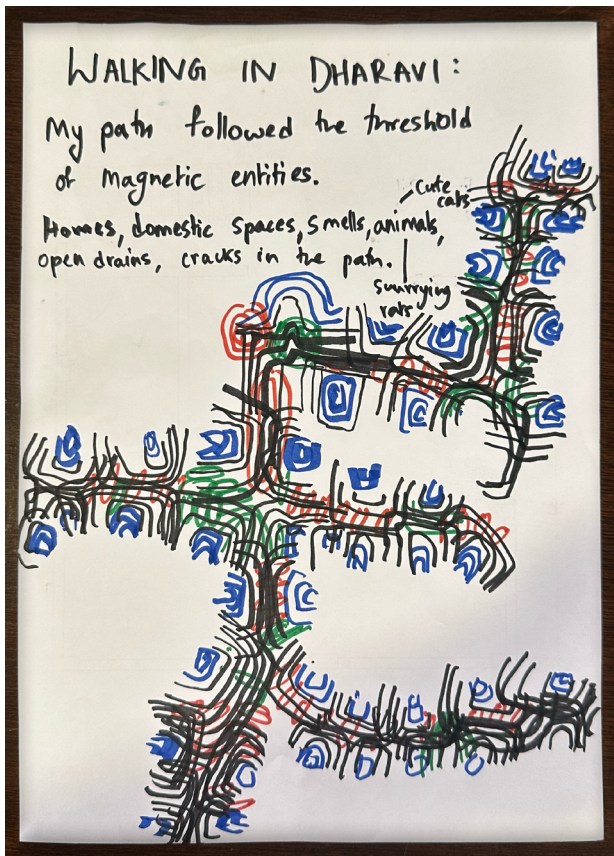 WALKING IN DHARAVI:
My path followed the threshold
of magnetic entities.
Homes, domestic spaces, smells, animals,
open drains, cracks in the path.
Cute
cats
scurrying
rats